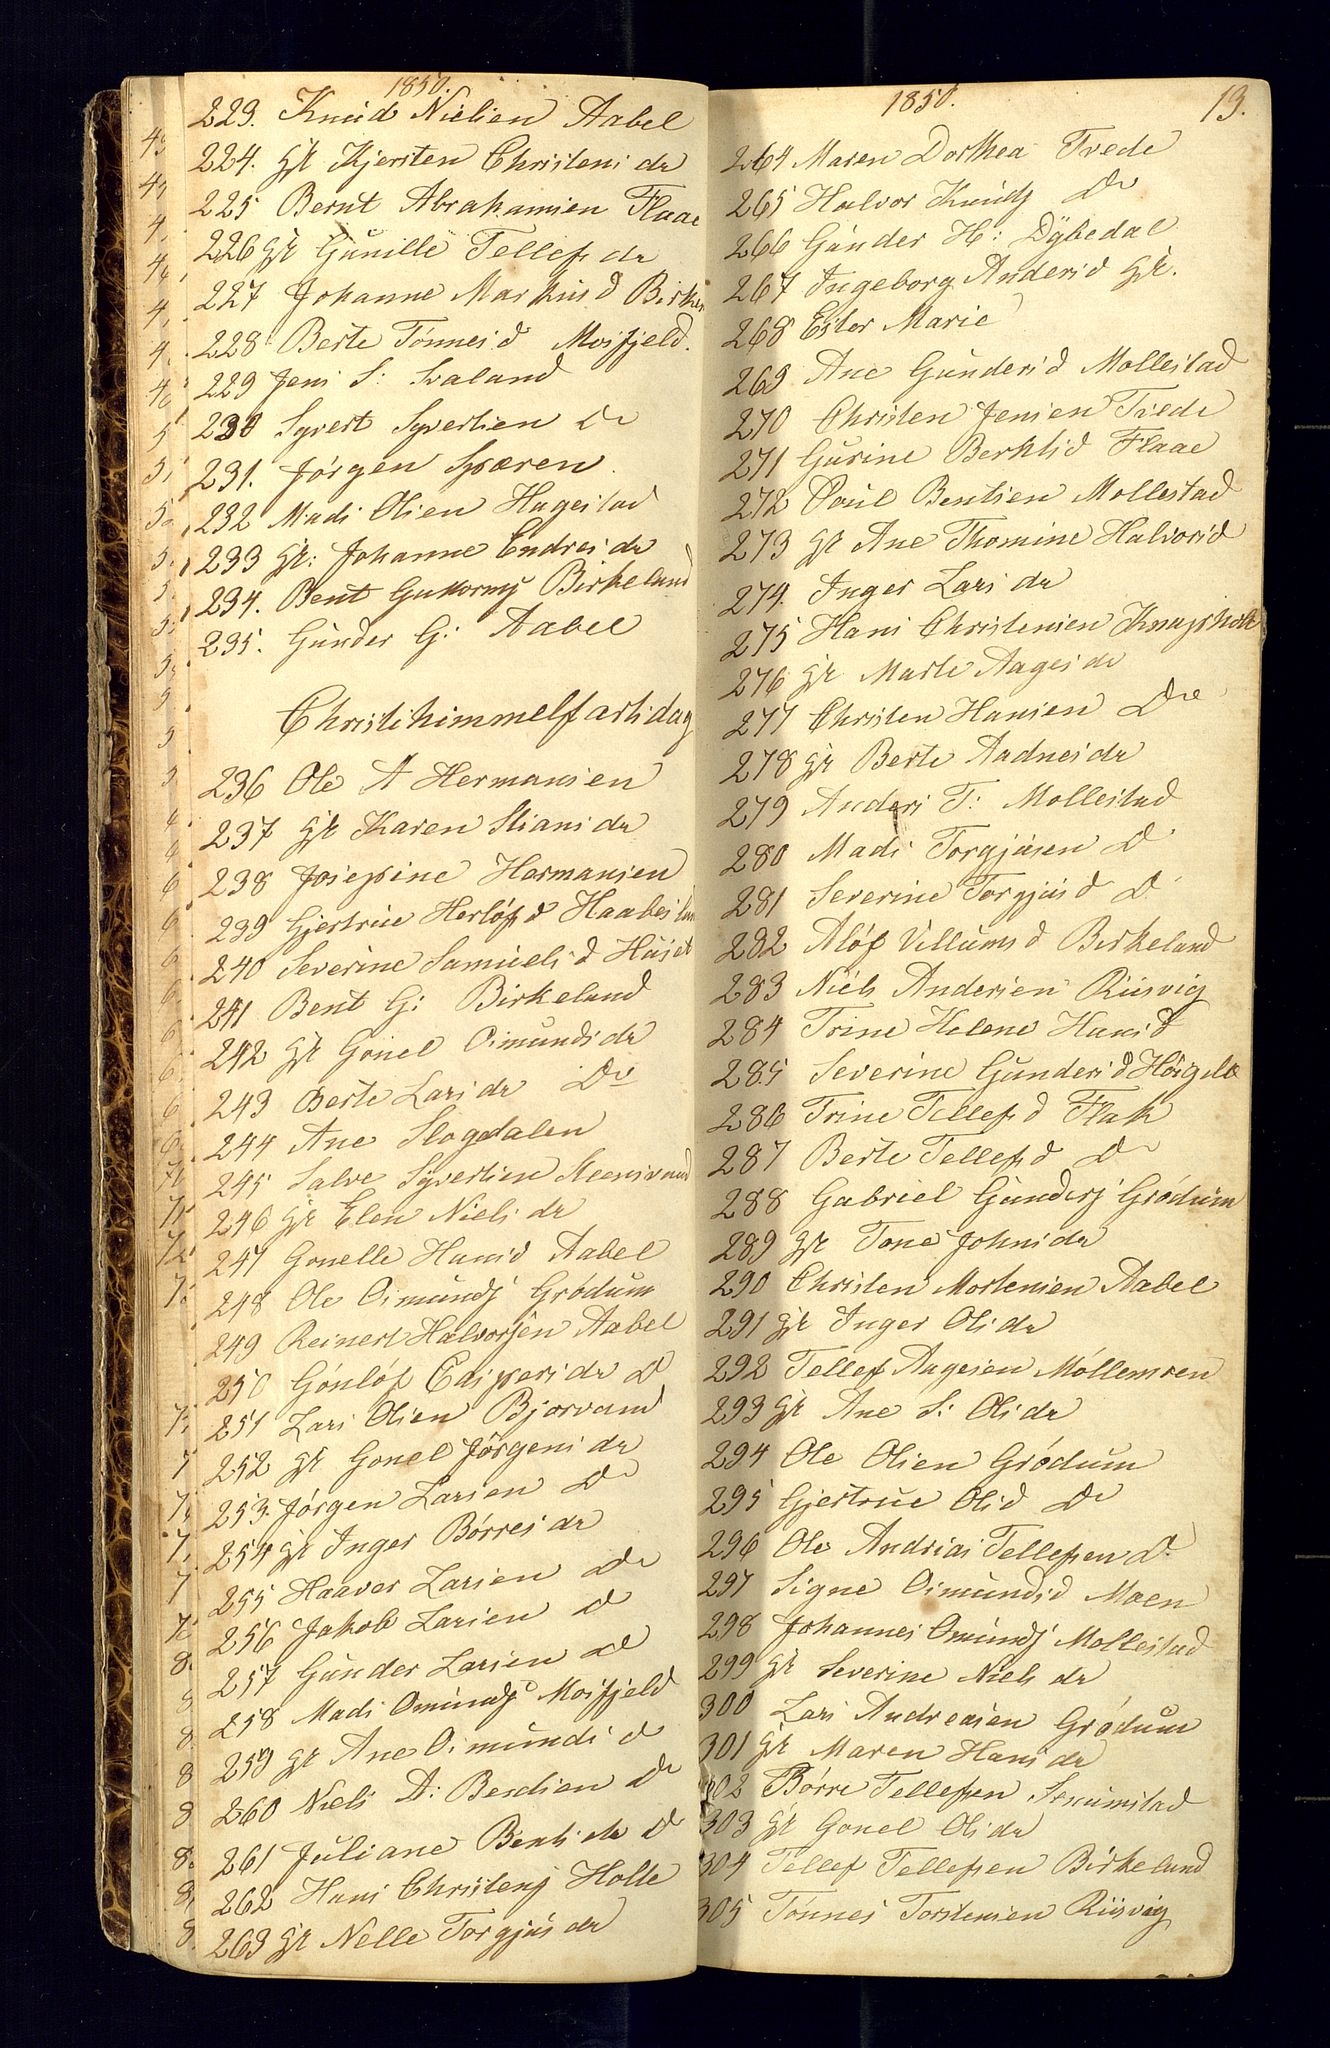 1850.
223. Knud Nielsen Aabel
224. gr Kjersten Christens dr
225 Bernt Abrahamsen Flaae
226 gr Gunille Tellefs dr
227 Johanne Markus d
228 Berte Tønnes d Mosfjeld.
229 Jens S: Svaland
230 Syvert Syvertsen do
231. Jørgen Spæren.
232 Mads Olsen Hagestad
233 gr: Johanne Endres dr
234. Bent Guttorms Birkeland
235. Gunder G: Aabel
Christi himmelfartsdag
236 Ole A Hermansen
237 gr Karen Stians dr
238 Josepine Hermansen
239 Gjertrue Herløfs d
240 Severine Samuels d
241 Bent G: Birkeland
242 gr Gonel Osmunds dr
243 Berte Lars dr do
244 Ane Slogdalen
245 Salve Syvertsen
246 gr Elen Niels dr
247 Gonelle Hansd Aabel
248 Ole Osmunds Grødum
249 Reinert Halvorsen Aabel
250 Gønløf Caspers dr do
251 Lars Olsen Bjorvand
252 gr Gonel Jørgens dr
253. Jørgen Larsen do
254 gr Inger Børres dr
255 Haaver Larsen do
256 Jakob Larsen do
257 Gunder Larsen do
258 Mads Omunds Mosfjeld
259 gr Ane Osmunds d
260 Niels A: Bentsen do
261 Juliane Bents dr do
262 Hans Christens Holte
263 gr Nelle Torgjus dr
1850. 13.
264 Maren Dorthea Trede
265 Halvor Knuds do
266 Gunder H: Dybedal
267 Ingeborg Andersd gr.
268 Ester Marie
269 Ane Gundersd Mollestad
270 Christen Jensen Trede
271 Gurine Berhtsd Flaae
272 Poul Bentsen Mollestad
273 gr Ane Thomine Halvorsd
274. Inger Lars dr
275 Hans Christensen
276 gr Marte Aages dr
277 Christen Hansen do
278 gr Berte Aadnes dr
279 Anders T: Mollestad
280 Mads Torgjusen do
281 Severine Torgjus d do
282 Aløf Villums d Birkeland
283 Niels Andersen Riisvig
284 Trine Helene Hans d
285 Severine Gunders d
286 Trine Tellefs d Flak
287 Berte Tellefs d do
288 Gabriel Gunders Grødum
289 gr Tone Johns dr
290 Christen Mortensen Aabel
291 gr Inger Ols dr
292 Tellef Aagesen Møllemren
293 gr Ane S: Ols dr
294 Ole Olsen Grødum
295 Gjertrue Ols d do
296 Ole Andrias Tellefsen do
297 Signe Osmundsd Moen
298 Johannes Omunds Mollestad
299 gr Severine Niels dr
300 Lars Andreasen Grødum
301 gr Maren Hans dr
302 Børre Tellefsen
303 gr Gonel Ols dr
304 Tellef Tellefsen Birkeland
305 Tønnes Torstensen Riisvig